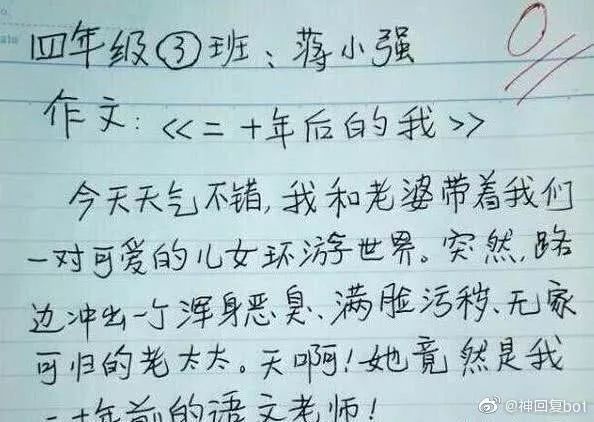 四年级③班：蒋小强
0
作文：《二十年后的我》
今天天气不错，我和老婆带着我们
一对可爱的儿女环游世界。突然，路
边冲出一个浑身恶臭、满脸污秽、无家
可归的老太太。天啊！她竟然是我
二十年前的语文老师！
@神回复bot